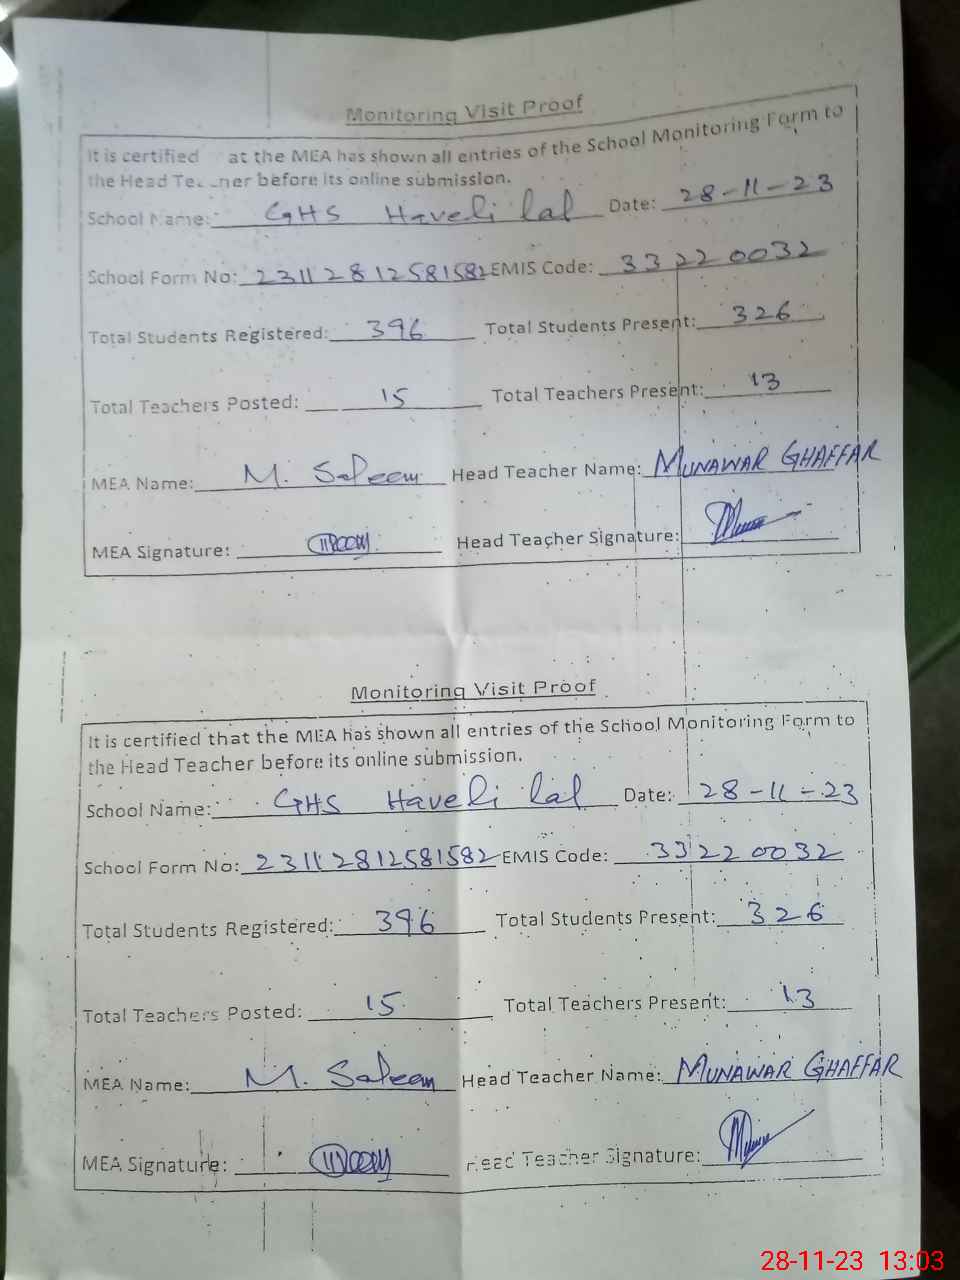 Monitoring Visit Proof
It is certified at the MEA has shown all entries of the School Monitoring Form to
the Head Teacher before its online submission.
School Name: GHS Haveli lal Date: 28-11-23
School Form No: 23112812581582 EMIS Code: 33220032
Total Students Registered: 396 Total Students Present: 326
Total Teachers Posted: 15 Total Teachers Present: 13
MEA Name: M. Saleem Head Teacher Name: MUNAWAR GHAFFAR
MEA Signature: Head Teacher Signature:
Monitoring Visit Proof
It is certified that the MEA has shown all entries of the School Monitoring Form to
the Head Teacher before its online submission.
School Name: GHS Haveli lal Date: 28-11-23
School Form No: 23112812581582 EMIS Code: 33220032
Total Students Registered: 396 Total Students Present: 326
Total Teachers Posted: 15 Total Teachers Present: 13
MEA Name: M. Saleem Head Teacher Name: MUNAWAR GHAFFAR
MEA Signature: Head Teacher Signature:
28-11-23 13:03